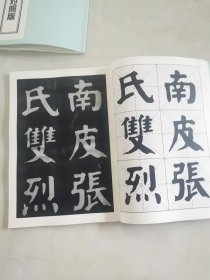 南皮張
氏雙烈
南皮張
氏雙烈